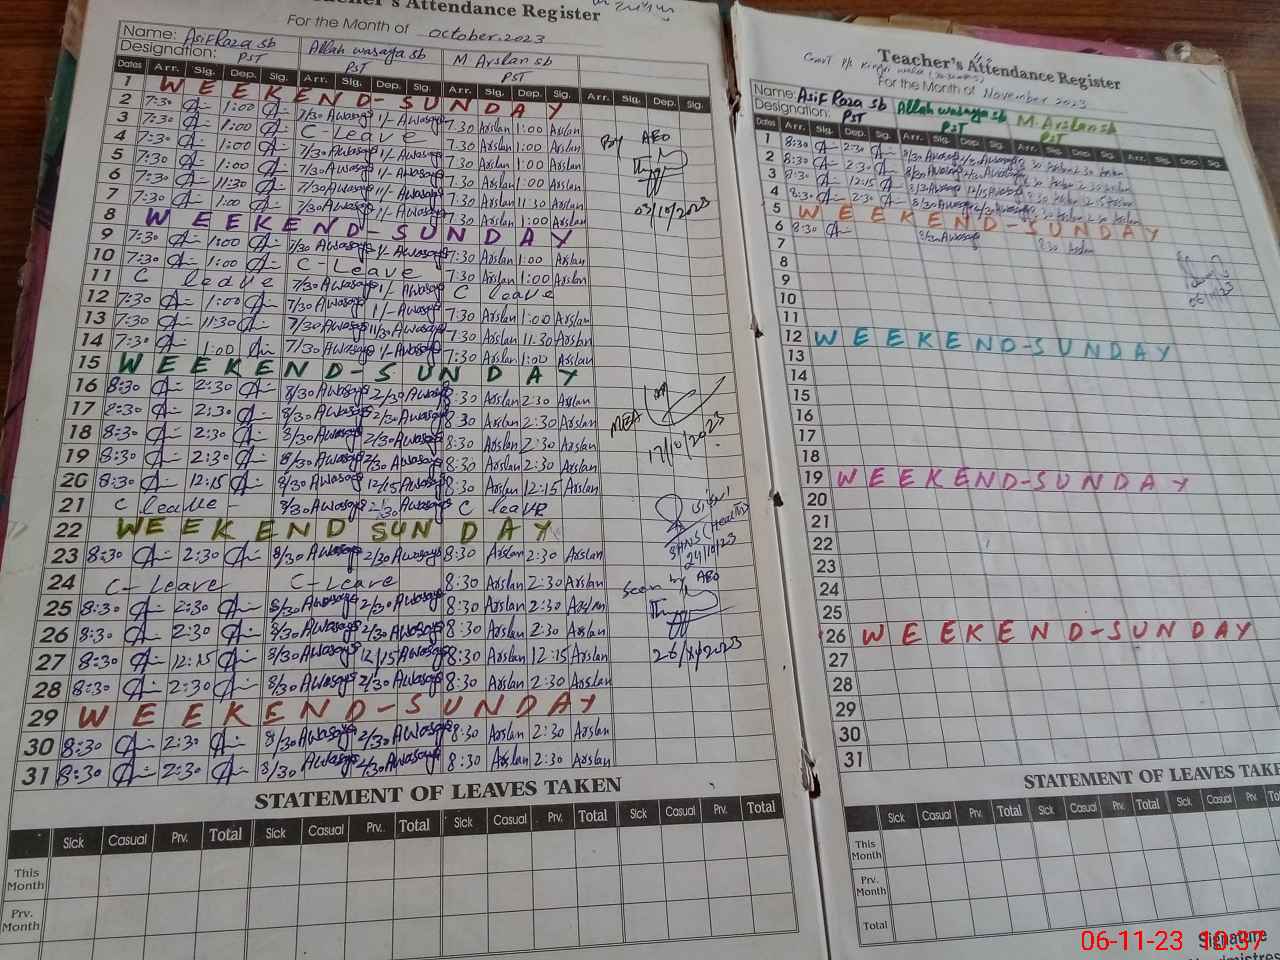 Teacher's Attendance Register
For the Month of October.2023
Name: Asif Raza sb Allah wasaya sb M Arslan sb
Designation: PST PST PST
Dates Arr. Sig. Dep. Sig. Arr. Sig. Dep. Sig. Arr. Sig. Dep. Sig. Arr. Sig. Dep. Sig.
1 WEEKEND-SUNDAY
2 7:30 1:00 7/30 Awasaya 1/- Awasaya 7.30 Arslan 1:00 Arslan
3 7:30 1:00 C-Leave 7.30 Arslan 1:00 Arslan
4 7:30 1:00 7/30 Awasaya 1/- Awasaya 7.30 Arslan 1:00 Arslan
5 7:30 1:00 7/30 Awasaya 1/- Awasaya 7.30 Arslan 1:00 Arslan
6 7:30 11:30 7/30 Awasaya Awasaya 7.30 Arslan 11:30 Arslan
7 7:30 1:00 7/30 Awasaya 1/- Awasaya 7.30 Arslan 1:00 Arslan
8 WEEKEND-SUNDAY
9 7:30 1:00 7/30 Awasaya 1/- Awasaya 7.30 Arslan 1:00 Arslan
10 7:30 1:00 C-Leave 7.30 Arslan 1:00 Arslan
11 C leave 7/30 Awasaya 1/- Awasaya C leave
12 7:30 1:00 7/30 Awasaya 1/- Awasaya 7.30 Arslan 1:00 Arslan
13 7:30 11:30 7/30 Awasaya 11/30 Awasaya 7.30 Arslan 11.30 Arslan
14 7:30 1:00 7/30 Awasaya 1/- Awasaya 7:30 Arslan 1:00 Arslan
15 WEEKEND-SUNDAY
16 8:30 2:30 8/30 Awasaya 2/30 Awasaya 8:30 Arslan 2:30 Arslan
17 8:30 2:30 8/30 Awasaya 2/30 Awasaya 8:30 Arslan 2:30 Arslan
18 8:30 2:30 8/30 Awasaya 2/30 Awasaya 8:30 Arslan 2:30 Arslan
19 8:30 2:30 8/30 Awasaya 2/30 Awasaya 8:30 Arslan 2:30 Arslan
20 8:30 12:15 8/30 Awasaya 12/15 Awasaya 8:30 Arslan 12:15 Arslan
21 C leave - 8/30 Awasaya 2/30 Awasaya C leave
22 WEEKEND SUNDAY
23 8:30 2:30 8/30 Awasaya 2/30 Awasaya 8:30 Arslan 2:30 Arslan
24 C-Leave C-Leave 8:30 Arslan 2:30 Arslan
25 8:30 2:30 8/30 Awasaya 2/30 Awasaya 8:30 Arslan 2:30 Arslan
26 8:30 2:30 8/30 Awasaya 2/30 Awasaya 8:30 Arslan 2:30 Arslan
27 8:30 12:15 8/30 Awasaya 12/15 Awasaya 8:30 Arslan 12:15 Arslan
28 8:30 2:30 8/30 Awasaya 2/30 Awasaya 8:30 Arslan 2:30 Arslan
29 WEEKEND-SUNDAY
30 8:30 2:30 8/30 Awasaya 2/30 Awasaya 8:30 Arslan 2:30 Arslan
31 8:30 2:30 8/30 Awasaya 2/30 Awasaya 8:30 Arslan 2:30 Arslan
By AEO
03/10/2023
MEA
17/10/2023
SHNS (Health)
24/10/23
Seen by AEO
26/X/2023
STATEMENT OF LEAVES TAKEN
Sick Casual Prv. Total Sick Casual Prv. Total Sick Casual Prv. Total Sick Casual Prv. Total
This Month
Prv. Month
Teacher's Attendance Register
For the Month of November 2023
Name: Asif Raza sb Allah wasaya sb M. Arslan sb
Designation: PST PST PST
Dates Arr. Sig. Dep. Sig. Arr. Sig. Dep. Sig. Arr. Sig. Dep. Sig. Arr. Sig. Dep. Sig.
1 8:30 2:30 8/30 Awasaya Awasaya
2 8:30 2:30 8/30 Awasaya Awasaya
3 8:30 12:15 8/30 Awasaya 12/15 Awasaya
4 8:30 2:30 8/30 Awasaya 2/30 Awasaya
5 WEEKEND-SUNDAY
6 8:30 8/30 Awasaya 8:30 Arslan
7
8
9
10
11
12 WEEKEND-SUNDAY
13
14
15
16
17
18
19 WEEKEND-SUNDAY
20
21
22
23
24
25
26 WEEKEND-SUNDAY
27
28
29
30
31
STATEMENT OF LEAVES TAKE
Sick Casual Prv. Total Sick Casual Prv. Total Sick Casual Prv.
This Month
Prv. Month
Total
Signature
06-11-23 10:37